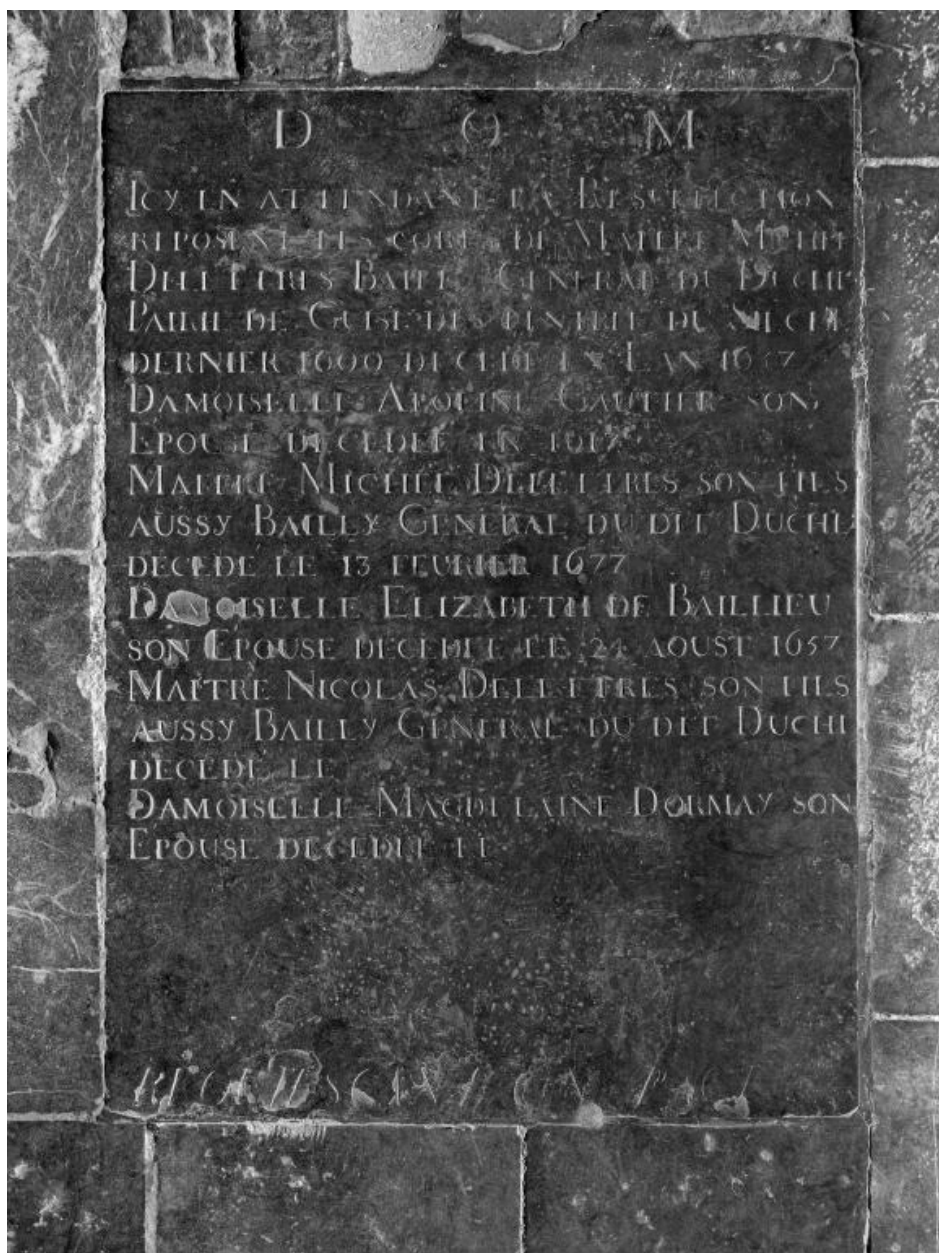 D O M
ICY EN ATTENDANT LA RESURECTION
REPOSENT LES CORPS DE MAITRE MICHEL
DELLETTRES BAILLY GENERAL DU DUCHE
PAIRIE DE GUISE DES DU SIECLE
DERNIER 1600 DECEDE EN LAN
DAMOISELLE APOLINE GAULTIER SON
EPOUSE DECEDEE EN
MAITRE MICHEL DELLETTRES SON FILS
AUSSY BAILLY GENERAL DU DIT DUCHE
DECEDE LE 13 FEURIER 1677
DAMOISELLE ELIZABETH DE BAILLIEU
SON EPOUSE DECEDEE LE AOUST 1657
MAITRE NICOLAS DELLETTRES SON FILS
AUSSY BAILLY GENERAL DU DIT DUCHE
DECEDE LE
DAMOISELLE MAGDELAINE DORMAY SON
EPOUSE DECEDEE LE